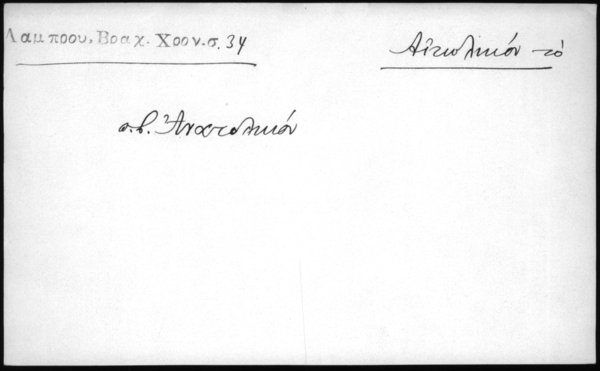 Λαμπρου, Βραχ. Χρον.σ. 34
Αἰτωλικόν τὸ
σ.β. Ἀνατολικόν